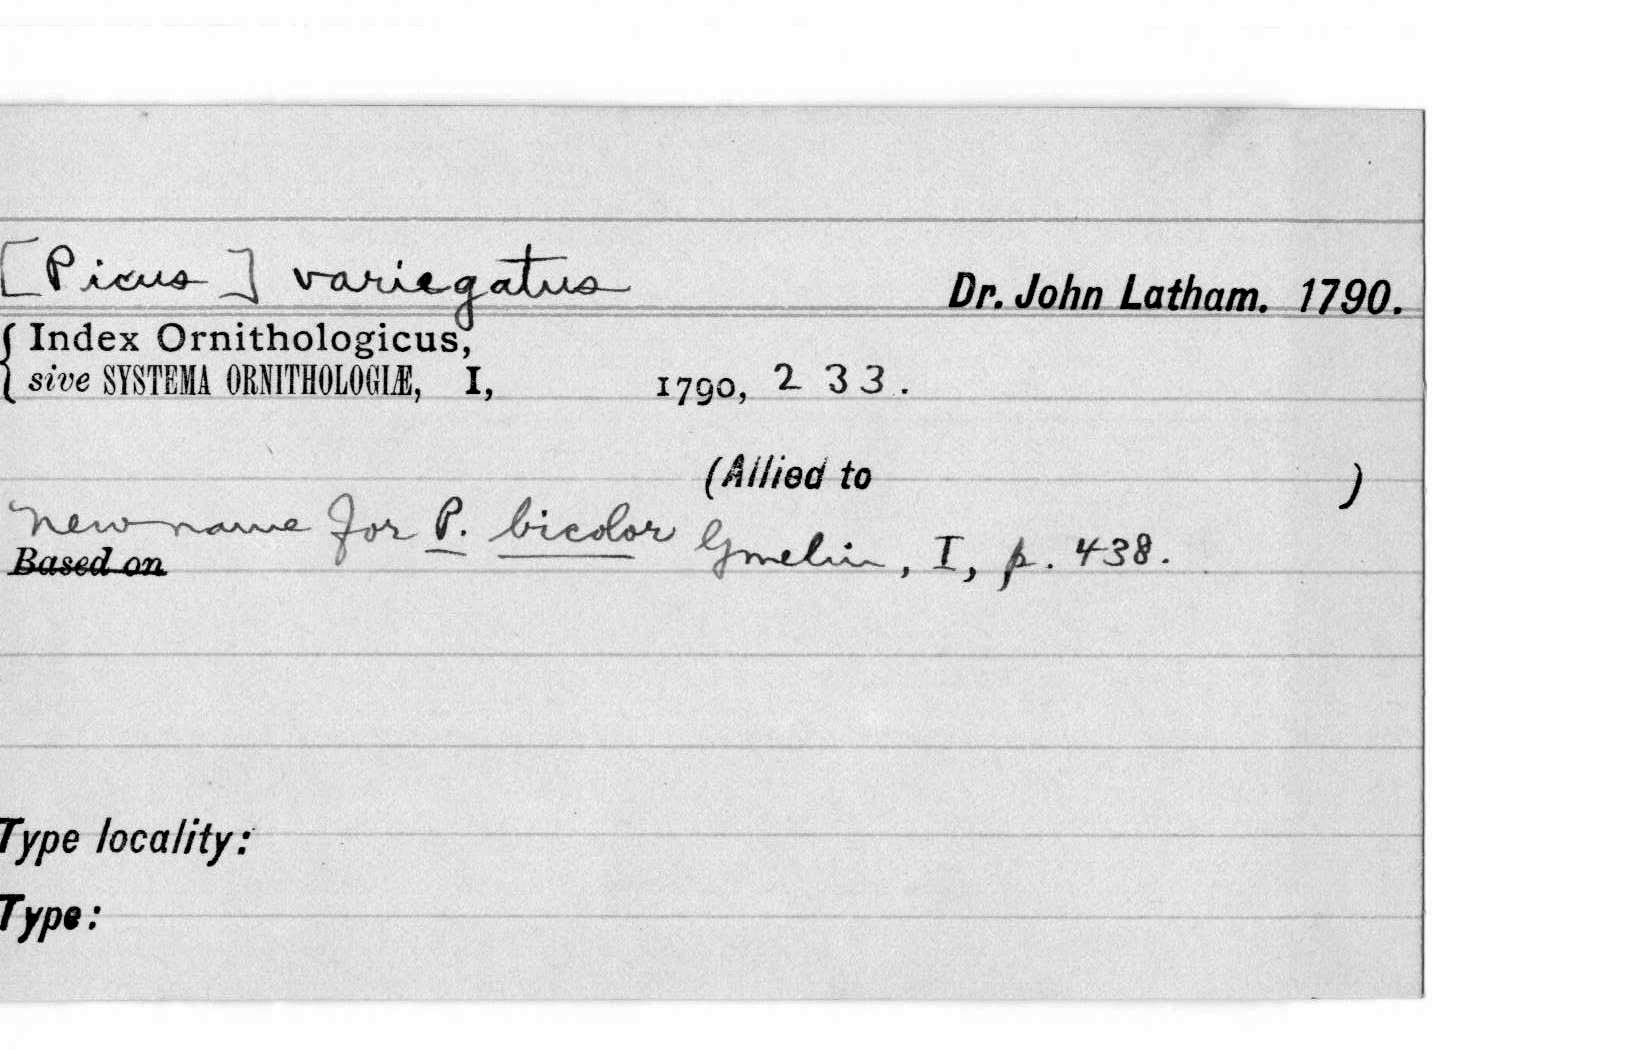 [Picus] variegatus Dr. John Latham. 1790.
Index Ornithologicus,
sive SYSTEMA ORNITHOLOGIÆ, I, 1790, 233.
(Allied to )
New name for P. bicolor Gmelin, I, p. 438.
Based on
Type locality:
Type: